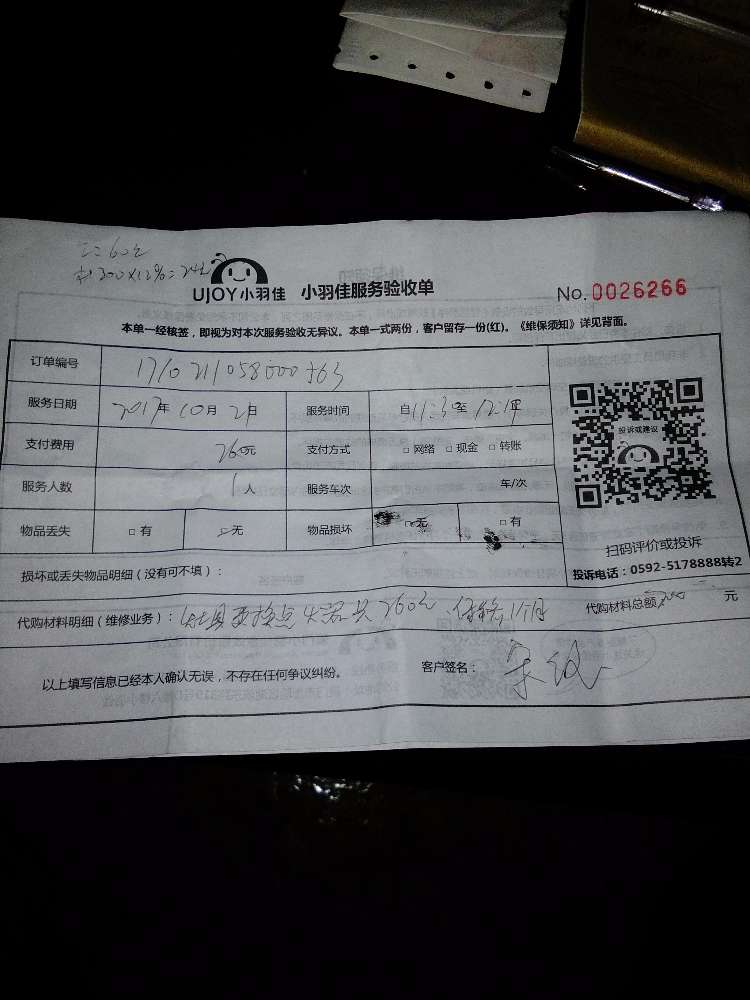 工:60元
材:200×12%=24元
UJOY小羽佳 小羽佳服务验收单 No.0026266
本单一经核签，即视为对本次服务验收无异议。本单一式两份，客户留存一份(红)。《维保须知》详见背面。
订单编号 171021105800563
服务日期 2017年10月21日 服务时间 自11:30至12:1时
支付费用 260元 支付方式 □网络 □现金 □转账
服务人数 1人 服务车次 车/次
物品丢失 □有 □无 物品损坏 □无 □有
投诉或建议
扫码评价或投诉
投诉电话：0592-5178888转2
损坏或丢失物品明细（没有可不填）：
代购材料明细（维修业务）：灶具更换点火器共260元，保修1个月 代购材料总额200元
以上填写信息已经本人确认无误，不存在任何争议纠纷。 客户签名：